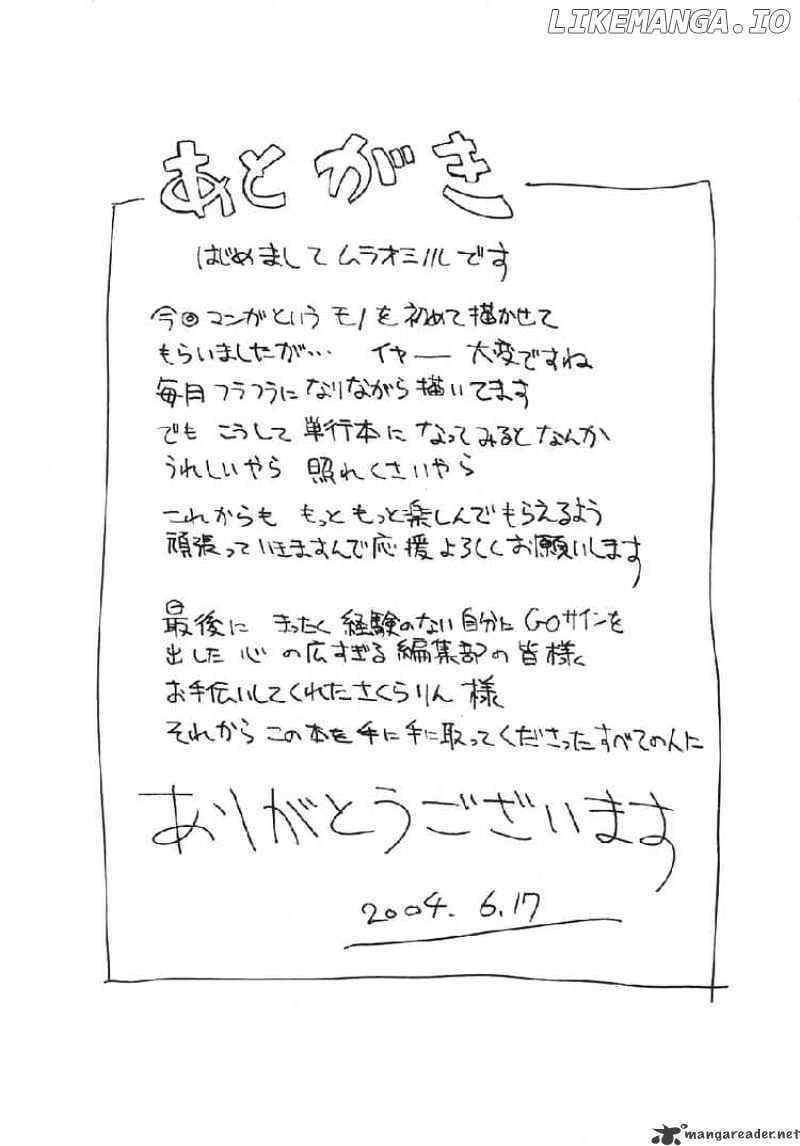 LIKEMANGA.IO
あとがき
はじめまして ムラオミノルです
今回マンガというモノを初めて描かせて
もらいましたが… イヤー 大変ですね
毎月フラフラになりながら描いてます
でも こうして 単行本に なってみると なんか
うれしいやら 照れくさいやら
これからも もっと もっと楽しんで もらえるよう
頑張っていきますんで応援よろしくお願いします
最後に まったく 経験のない自分に GOサインを
出した 心 の広すぎる 編集部の 皆様
お手伝いしてくれたさくらりん 様
それから この本を 手に 手に取ってくださった すべての人に
ありがとうございます
2004. 6.17
mangareader.net